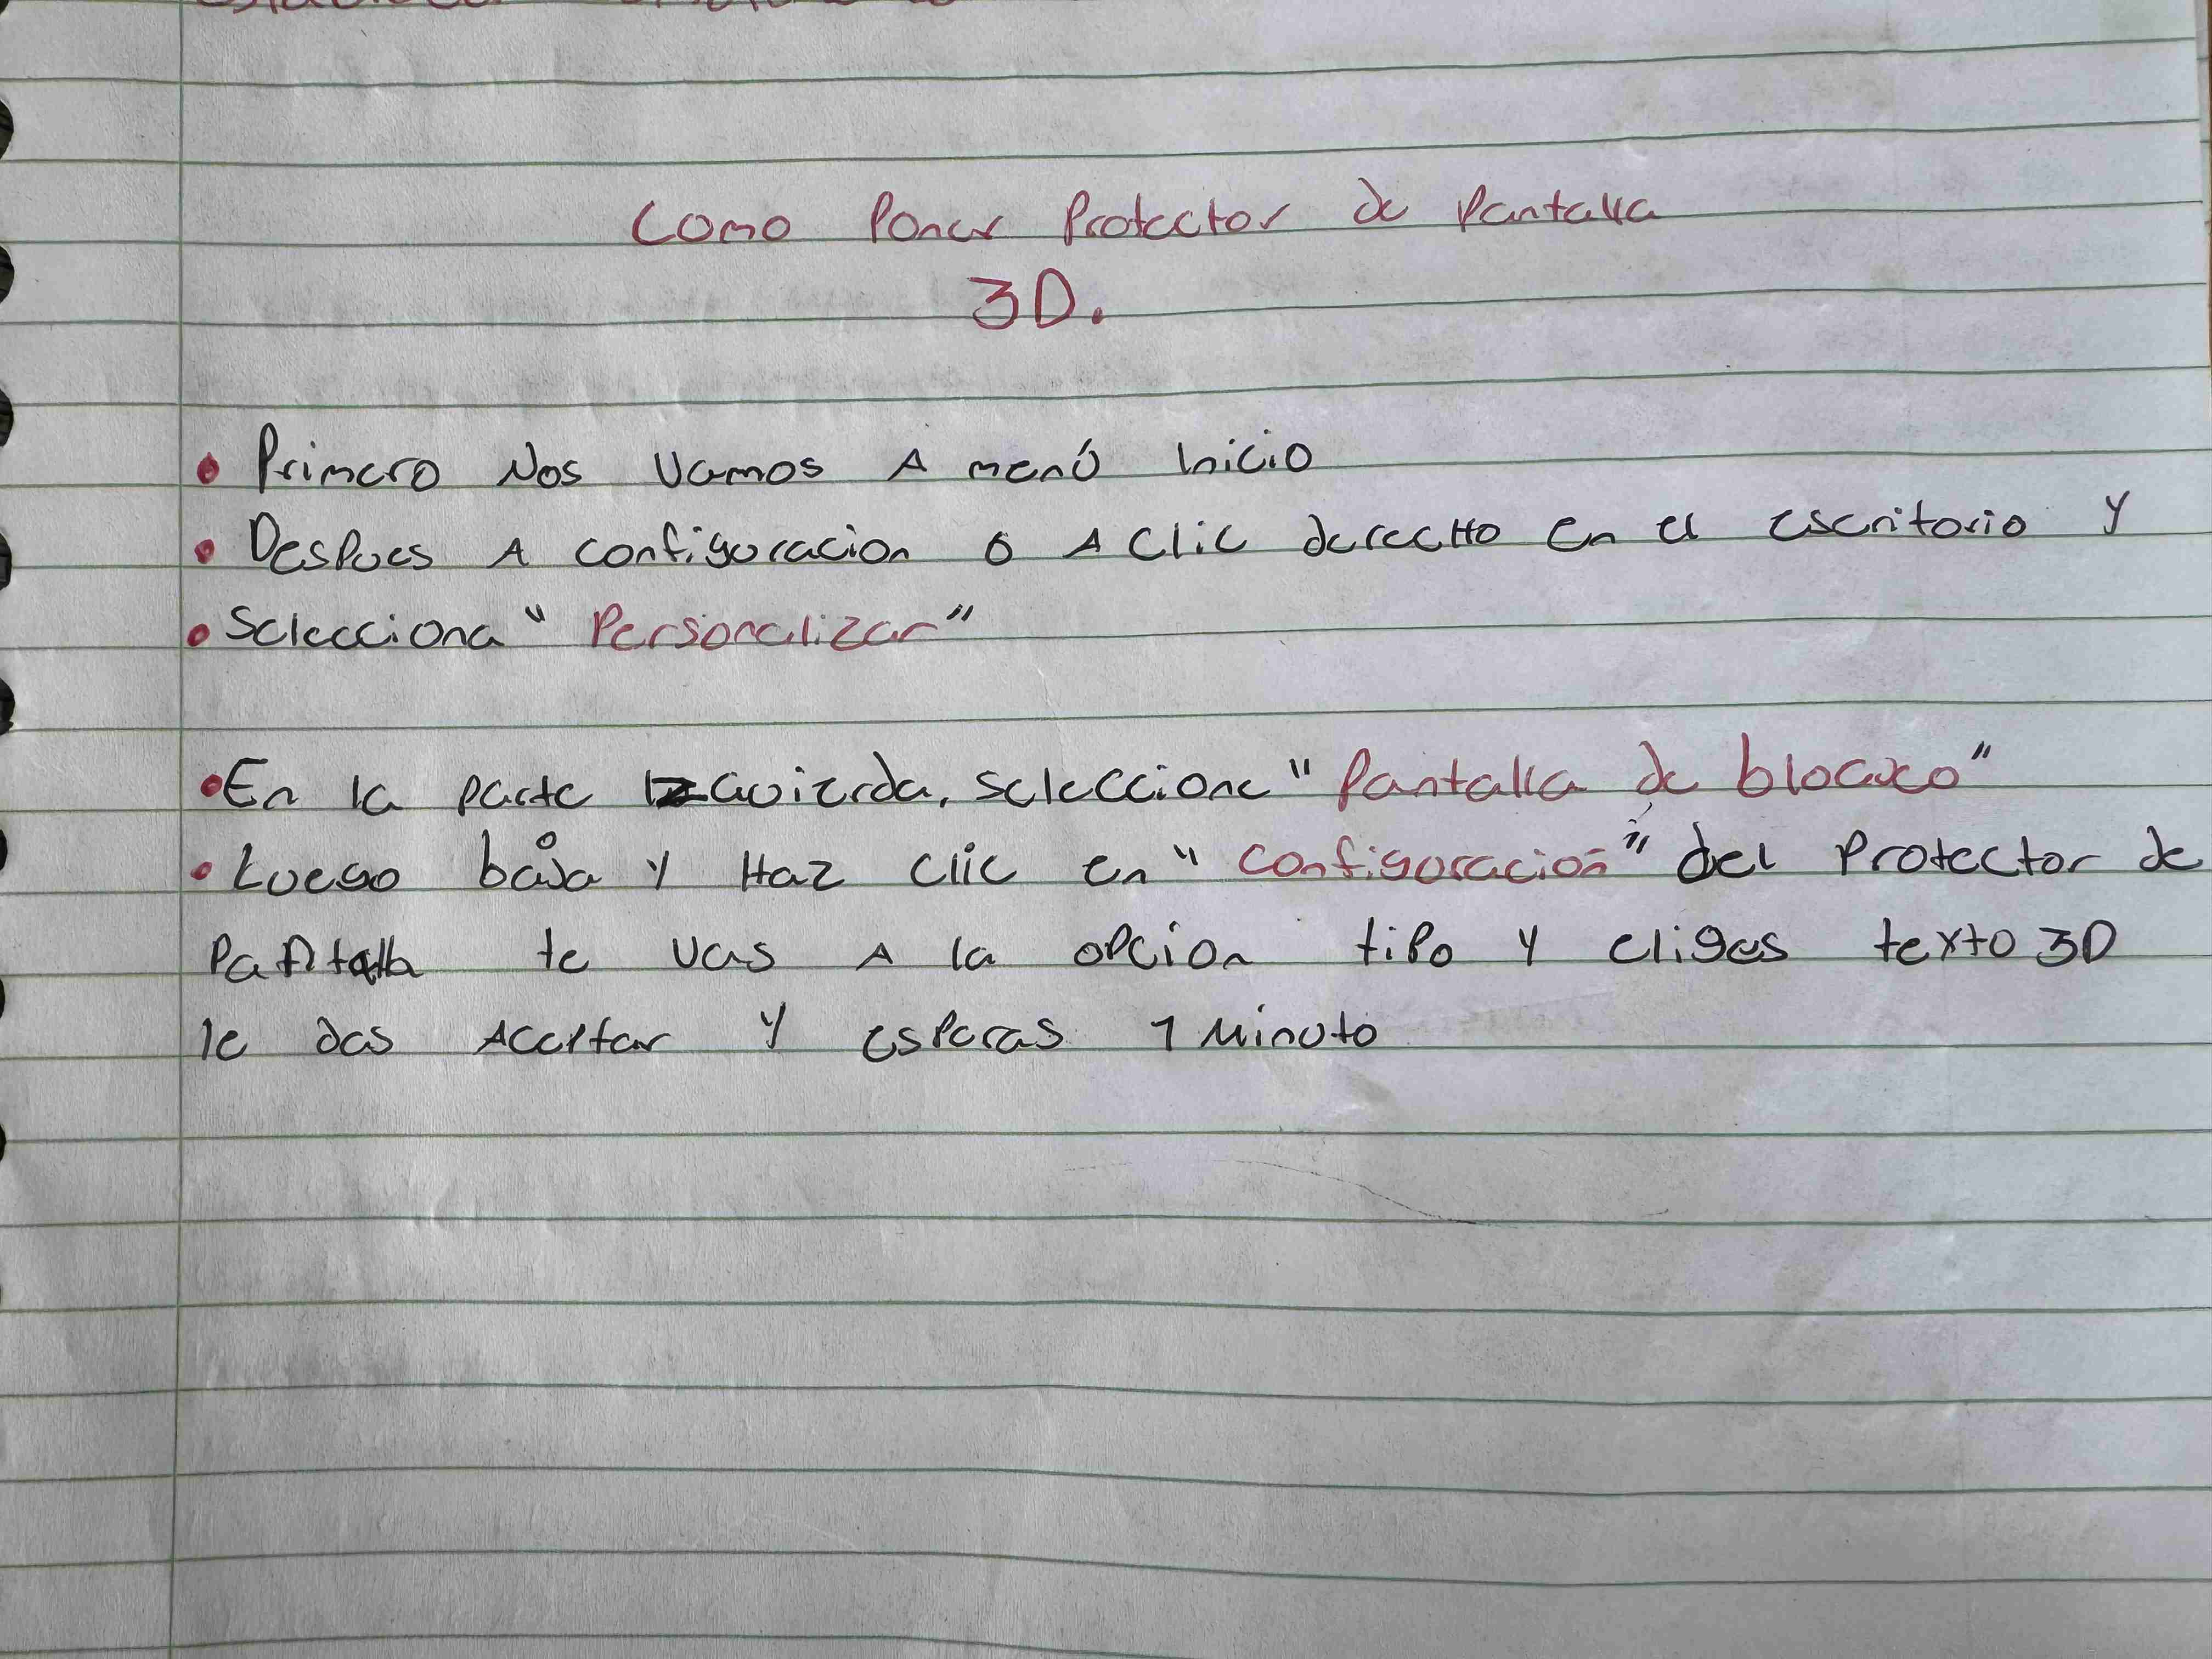 Como Poner Protector de Pantalla
3D.
• Primero Nos Vamos A menú Inicio
• Despues A configuracion o A Clic derecho en el escritorio y
• Selecciona "Personalizar"
• En la parte Izquierda, seleccione "Pantalla de bloqueo"
• Luego baja y Haz clic en "Configuración" del Protector de
Pantalla te vas A la opcion tipo y eliges texto 3D
le das Aceptar y esperas 1 Minuto